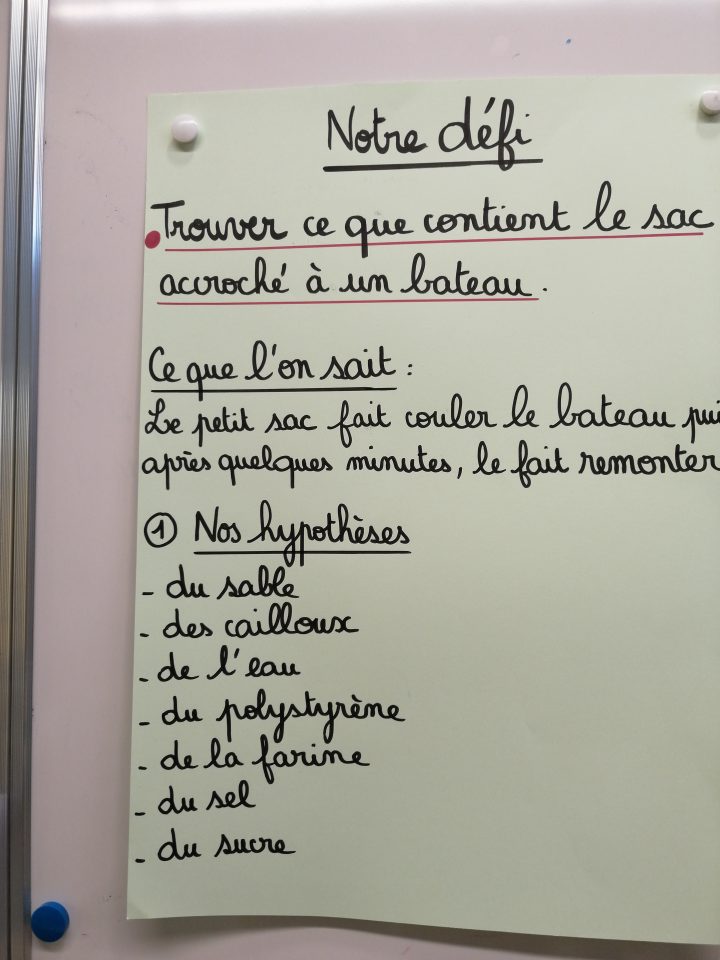 Notre défi
Trouver ce que contient le sac
accroché à un bateau.
Ce que l'on sait :
Le petit sac fait couler le bateau
après quelques minutes, le fait remonter
① Nos hypothèses
- du sable
- des cailloux
- de l'eau
- du polystyrène
- de la farine
- du sel
- du sucre